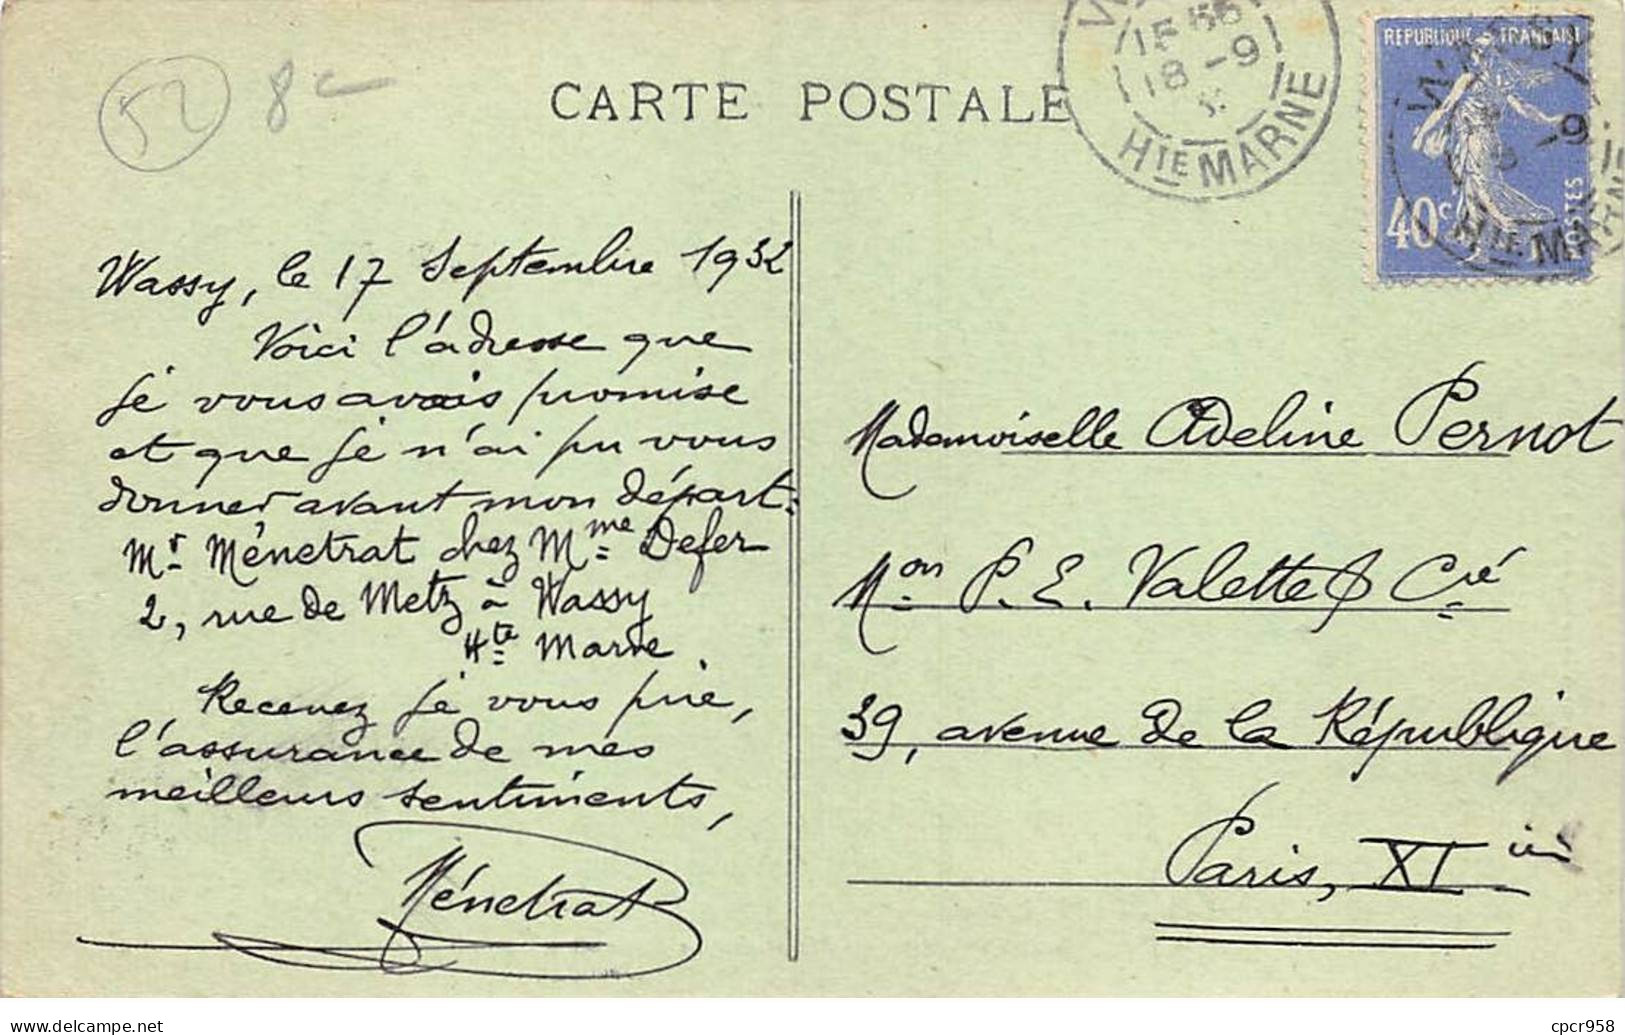 52 8
CARTE POSTALE
15 18 -9
HTE MARNE
REPUBLIQUE FRANÇAISE
40c POSTES
WASSY -9
HTE MARNE
Wassy, le 17 Septembre 1932
Voici l'adresse que
je vous avais promise
et que je n'ai pu vous
donner avant mon départ :
Mr Ménetrat chez Mme Defer
2, rue de Metz à Wassy
Hte Marne
Recevez je vous prie,
l'assurance de mes
meilleurs sentiments,
Ménetrat
Mademoiselle Adeline Pernot
Mon P. E. Valette & Cie
39, avenue de la République
Paris, XI
cpcr958